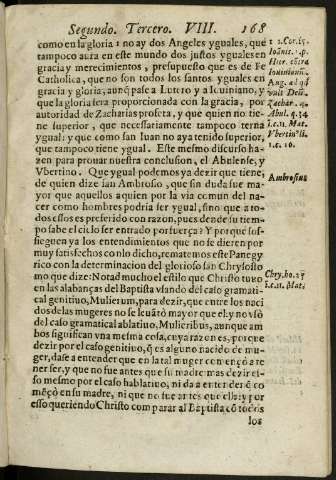 Segundo. Tercero. VIII. 168
como en la gloria no ay dos Angeles yguales, que
tampoco aura en este mundo dos justos yguales en
gracia y merecimientos, presupuesto que es de Fe
Catholica, que no son todos los santos yguales en
gracia y gloria, aunq̃ pese a Lutero y a Iouiniano, y
que la gloria sera proporcionada con la gracia, por
autoridad de Zacharias profeta, y que quien no tie-
ne superior, que necessariamente tampoco terna
ygual: y que como san Iuan no aya tenido superior,
que tampoco tiene ygual. Este mesmo discurso ha-
zen para prouar nuestra conclusion, el Abulense, y
Vbertino. Que ygual podemos ya dezir que tiene,
de quien dize san Ambrosio, que sin duda fue ma-
yor que aquellos a quien por la via comun del na-
cer como hombres podria ser ygual, sino que a to-
dos essos es preferido con razon, pues desde su tiem-
po sabe el cielo ser entrado por fuerça? Y porque sos-
sieguen ya los entendimientos que no se dieren por
muy satisfechos con lo dicho, rematemos este Panegy
rico con la determinacion del glorioso san Chrysosto
mo que dize: Notad mucho el estilo que Christo tuuo
en las alabanças del Baptista vsando del caso gramati-
cal genitiuo, Mulierum, para dezir, que entre los naci
dos de las mugeres no se leuãtò mayor que el: y no vsò
del caso gramatical ablatiuo, Mulieribus, aunque am
bos significan vna mesma cosa, cuya razon es, porque
dezir por el caso genitiuo, q̃ es alguno nacido de mu-
ger, dase a entender que en la tal muger començò a te
ner ser, y que no fue antes que su madre mas dezir es-
so mesmo por el caso hablatiuo, ni da a entender q̃ co
mẽçò en su madre, ni que no fue antes que ella: y por
esso queriendo Christo comparar al Baptista cõ todos
los
1. Cor. 15.
Ioãnis. 1. p.
Hier. cõtra
Iouinianũ.
Zachar. 4.
Abul. q. 34
i. c. 11. Mat.
Vbertin⁹ li.
1. c. 16.
Ambrosius
Chry. ho. 27
i. c. 11. Mat.